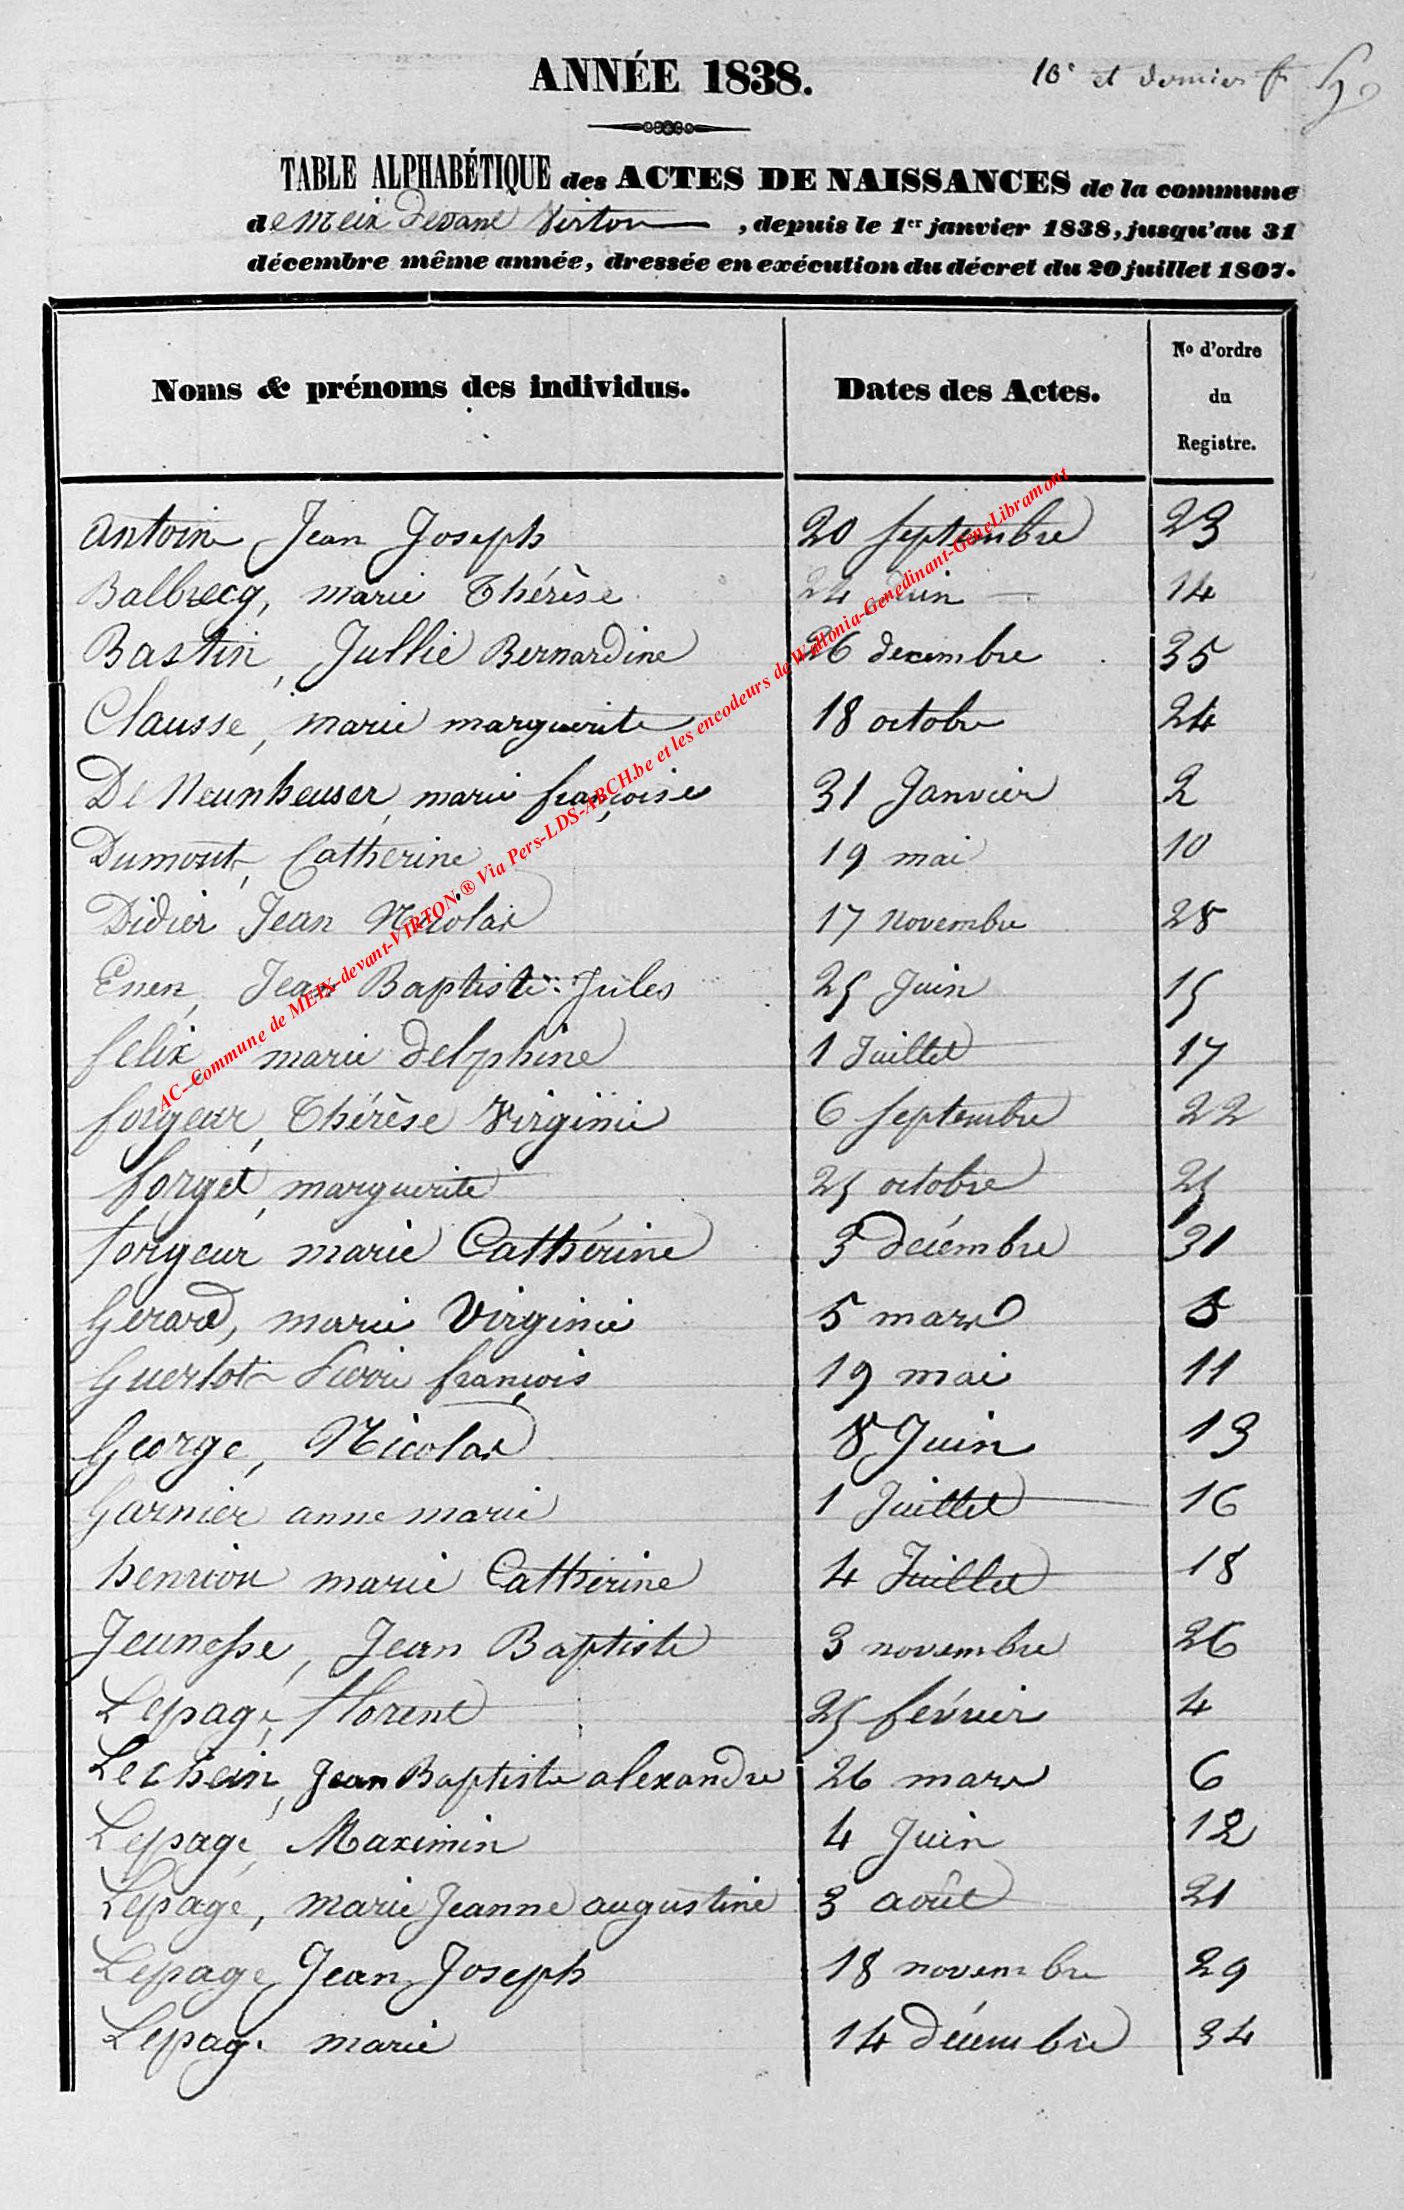 ANNÉE 1838.
10e et dernier f
TABLE ALPHABÉTIQUE des ACTES DE NAISSANCES de la commune
de Meix devant Virton, depuis le 1er janvier 1838, jusqu'au 31
décembre même année, dressée en exécution du décret du 20 juillet 1807.
Noms & prénoms des individus. Dates des Actes. No d'ordre
du
Registre.
antoine Jean Joseph 20 septembre 23
Balbrecq, marie Thérèse 24 Juin 14
Bastin, Jullie Bernardine 26 decembre 35
Clausse, marie marguerite 18 octobre 24
De Neunheuser, marie françoise 31 Janvier 2
Dumont, Catherine 19 mai 10
Didier Jean Nicolas 17 Novembre 28
Enen, Jean Baptiste Jules 25 Juin 15
felix, marie delphine 1 Juillet 17
forgeur, Thérèse Virginie 6 septembre 22
forget, marguerite 25 octobre 25
forgeur marie Cathérine 3 décembre 31
Gerard, marie Virginie 5 mars 5
Guerlot Pierre françois 19 mai 11
George, Nicolas 8 Juin 13
Garnier anne marie 1 Juillet 16
henrion marie Catherine 4 Juillet 18
Jeunesse, Jean Baptiste 3 novembre 26
Lepage, florent 25 février 4
Lechein, Jean Baptiste alexandre 26 mars 6
Lepage, Maximin 4 Juin 12
Lepage, marie Jeanne augustine 3 août 21
Lepage, Jean Joseph 18 novembre 29
Lepage marie 14 décembre 34
AC-Commune de MEIX-devant-VIRTON ® Via Pers-LDS-ARCH.be et les encodeurs de Wallonia-Genedinant-GeneLibramont